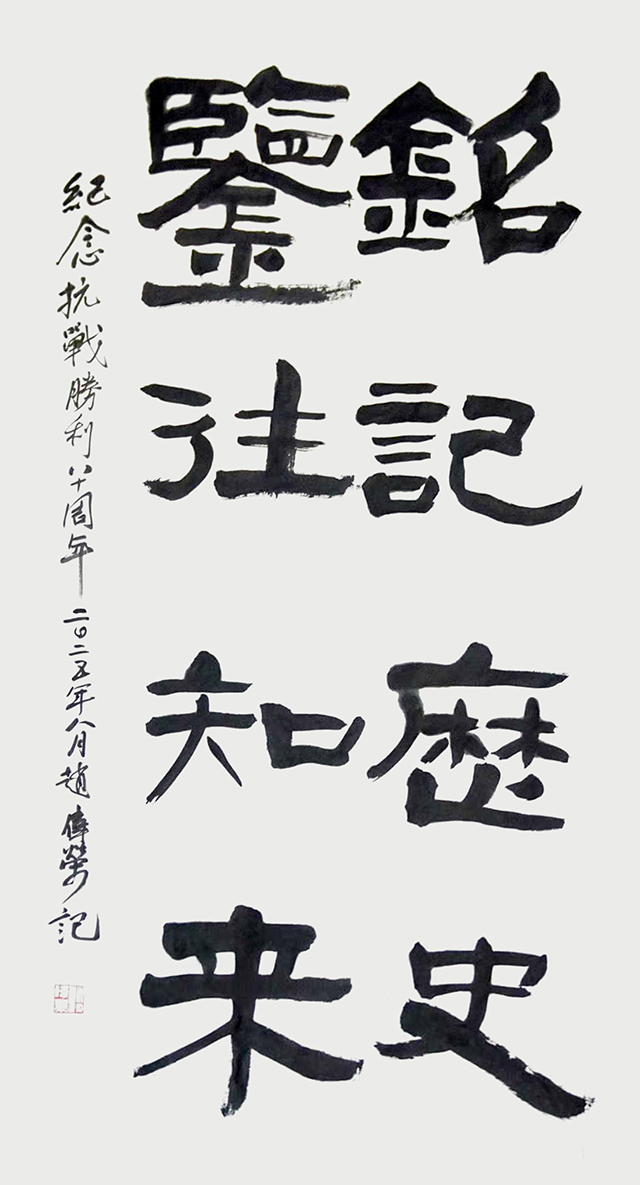 銘記歷史
鑒往知来
紀念抗戰勝利八十周年二〇二五年八月趙偉榮記